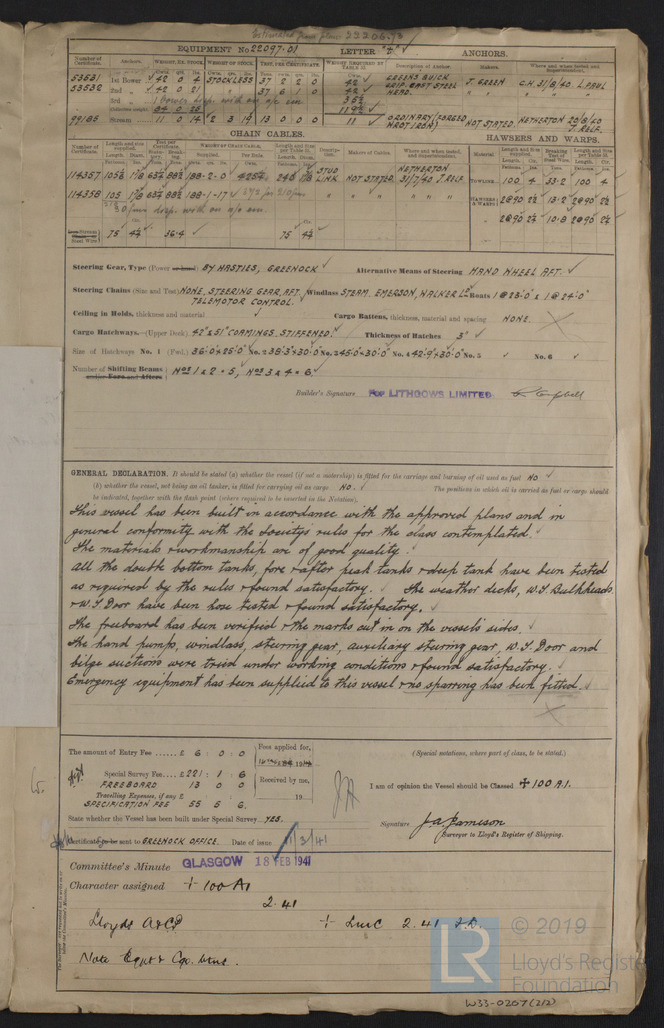 Estimated from plan 22206.73
EQUIPMENT No 22097.01 LETTER "Z" ✓ ANCHORS.
Number of Certificate. Anchors. WEIGHT, EX. STOCK WEIGHT OF STOCK. TEST, PER CERTIFICATE. WEIGHT REQUIRED BY TABLE 31. Description of Anchor. Makers of Anchors. Where and when tested and Superintendent.
53531 1st Bower ✓ 42 0 4 STOCKLESS 37 2 2 0 42 GREENS BUICK J. GREEN C.H. 31/8/40 L. PAUL
53532 2nd " ✓ 42 0 21 " 37 6 1 0 42 GRIP CAST STEEL " " "
3rd " 1 Bower disp. with on a/c em. 35½ HEAD.
Collective weight 84 0 25 119½
99185 Stream 11 0 14 2 3 14 13 0 0 0 11 ORDINARY (FORGED WROT IRON) NOT STATED. NETHERTON 20/8/40 J. RELF.
CHAIN CABLES. HAWSERS AND WARPS.
114357 105⅝ 1⅞ 63¼ 88½ 188-2-0 STUD LINK NOT STATED NETHERTON 31/7/40 J. RELF. TOWLINE 100 4 33.2 100 4
114358 105 1⅞ 63¼ 88½ 188-1-17 " " " " HAWSERS & WARPS 2@90 2½ 13.2 2@90 2½
30 fms disp. with on a/c em.
2@90 2¼ 10.8 2@90 2¼
Steel Wire 75 4¼ 36.4 75 4¼
Steering Gear, Type (Power or hand) BY HASTIES, GREENOCK ✓ Alternative Means of Steering HAND WHEEL AFT. ✓
Steering Chains (Size and Test) NONE, STEERING GEAR AFT. Windlass STEAM. EMERSON, WALKER LD Boats 1 @ 23'.0" & 1 @ 24'.0"
TELEMOTOR CONTROL.
Ceiling in Holds, thickness and material ✓ Cargo Battens, thickness, material and spacing NONE.
Cargo Hatchways.—(Upper Deck) 42" & 51" COAMINGS. STIFFENED. Thickness of Hatches 3" ✓
Size of Hatchways No. 1 (Fwd.) 36'.0" x 25'.0" No. 2 38'.3" x 30'.0" No. 3 45'.0" x 30'.0" No. 4 42'.9" x 30'.0" No. 5 ✓ No. 6 ✓
Number of Shifting Beams Nos 1 & 2 = 5, Nos 3 & 4 = 6 ✓
and/or Fore and Afters
Builder's Signature For LITHGOWS LIMITED
GENERAL DECLARATION. It should be stated (a) whether the vessel (if not a motorship) is fitted for the carriage and burning of oil used as fuel NO ✓
(b) whether the vessel, not being an oil tanker, is fitted for carrying oil as cargo NO. ✓ The positions in which oil is carried as fuel or cargo should
be indicated, together with the flash point (where required to be inserted in the Notation).
This vessel has been built in accordance with the approved plans and in
general conformity with the Society's rules for the class contemplated.
The materials & workmanship are of good quality.
All the double bottom tanks, fore & after peak tanks & deep tank have been tested
as required by the rules & found satisfactory. The weather decks, W.T. Bulkheads
& W.T. Door have been hose tested & found satisfactory.
The freeboard has been verified & the marks cut in on the vessel's sides.
The hand pumps, windlass, steering gear, auxiliary steering gear, W.T. Door and
bilge suctions were tried under working conditions & found satisfactory.
Emergency equipment has been supplied to this vessel & no sparring has been fitted.
The amount of Entry Fee ...... £ 6 : 0 : 0 Fees applied for, (Special notations, where part of class, to be stated.)
Special Survey Fee .... £ 221 : 1 : 6 Received by me,
FREEBOARD 13 0 0 I am of opinion the Vessel should be Classed ✠ 100 A1.
Travelling Expenses, if any £ 19
SPECIFICATION FEE 55 5 6.
State whether the Vessel has been built under Special Survey YES. Signature J.A. Jamieson
Surveyor to Lloyd's Register of Shipping.
Certificate to be sent to GREENOCK OFFICE. Date of issue 11/3/41
Committee's Minute GLASGOW 18 FEB 1941
Character assigned ✠ 100 A1
2.41
Lloyds A&CP + LMC 2.41 F.D.
Note Eqpt &
© 2019
LR
Lloyd's Register
Foundation
W33-0207 (2/2)